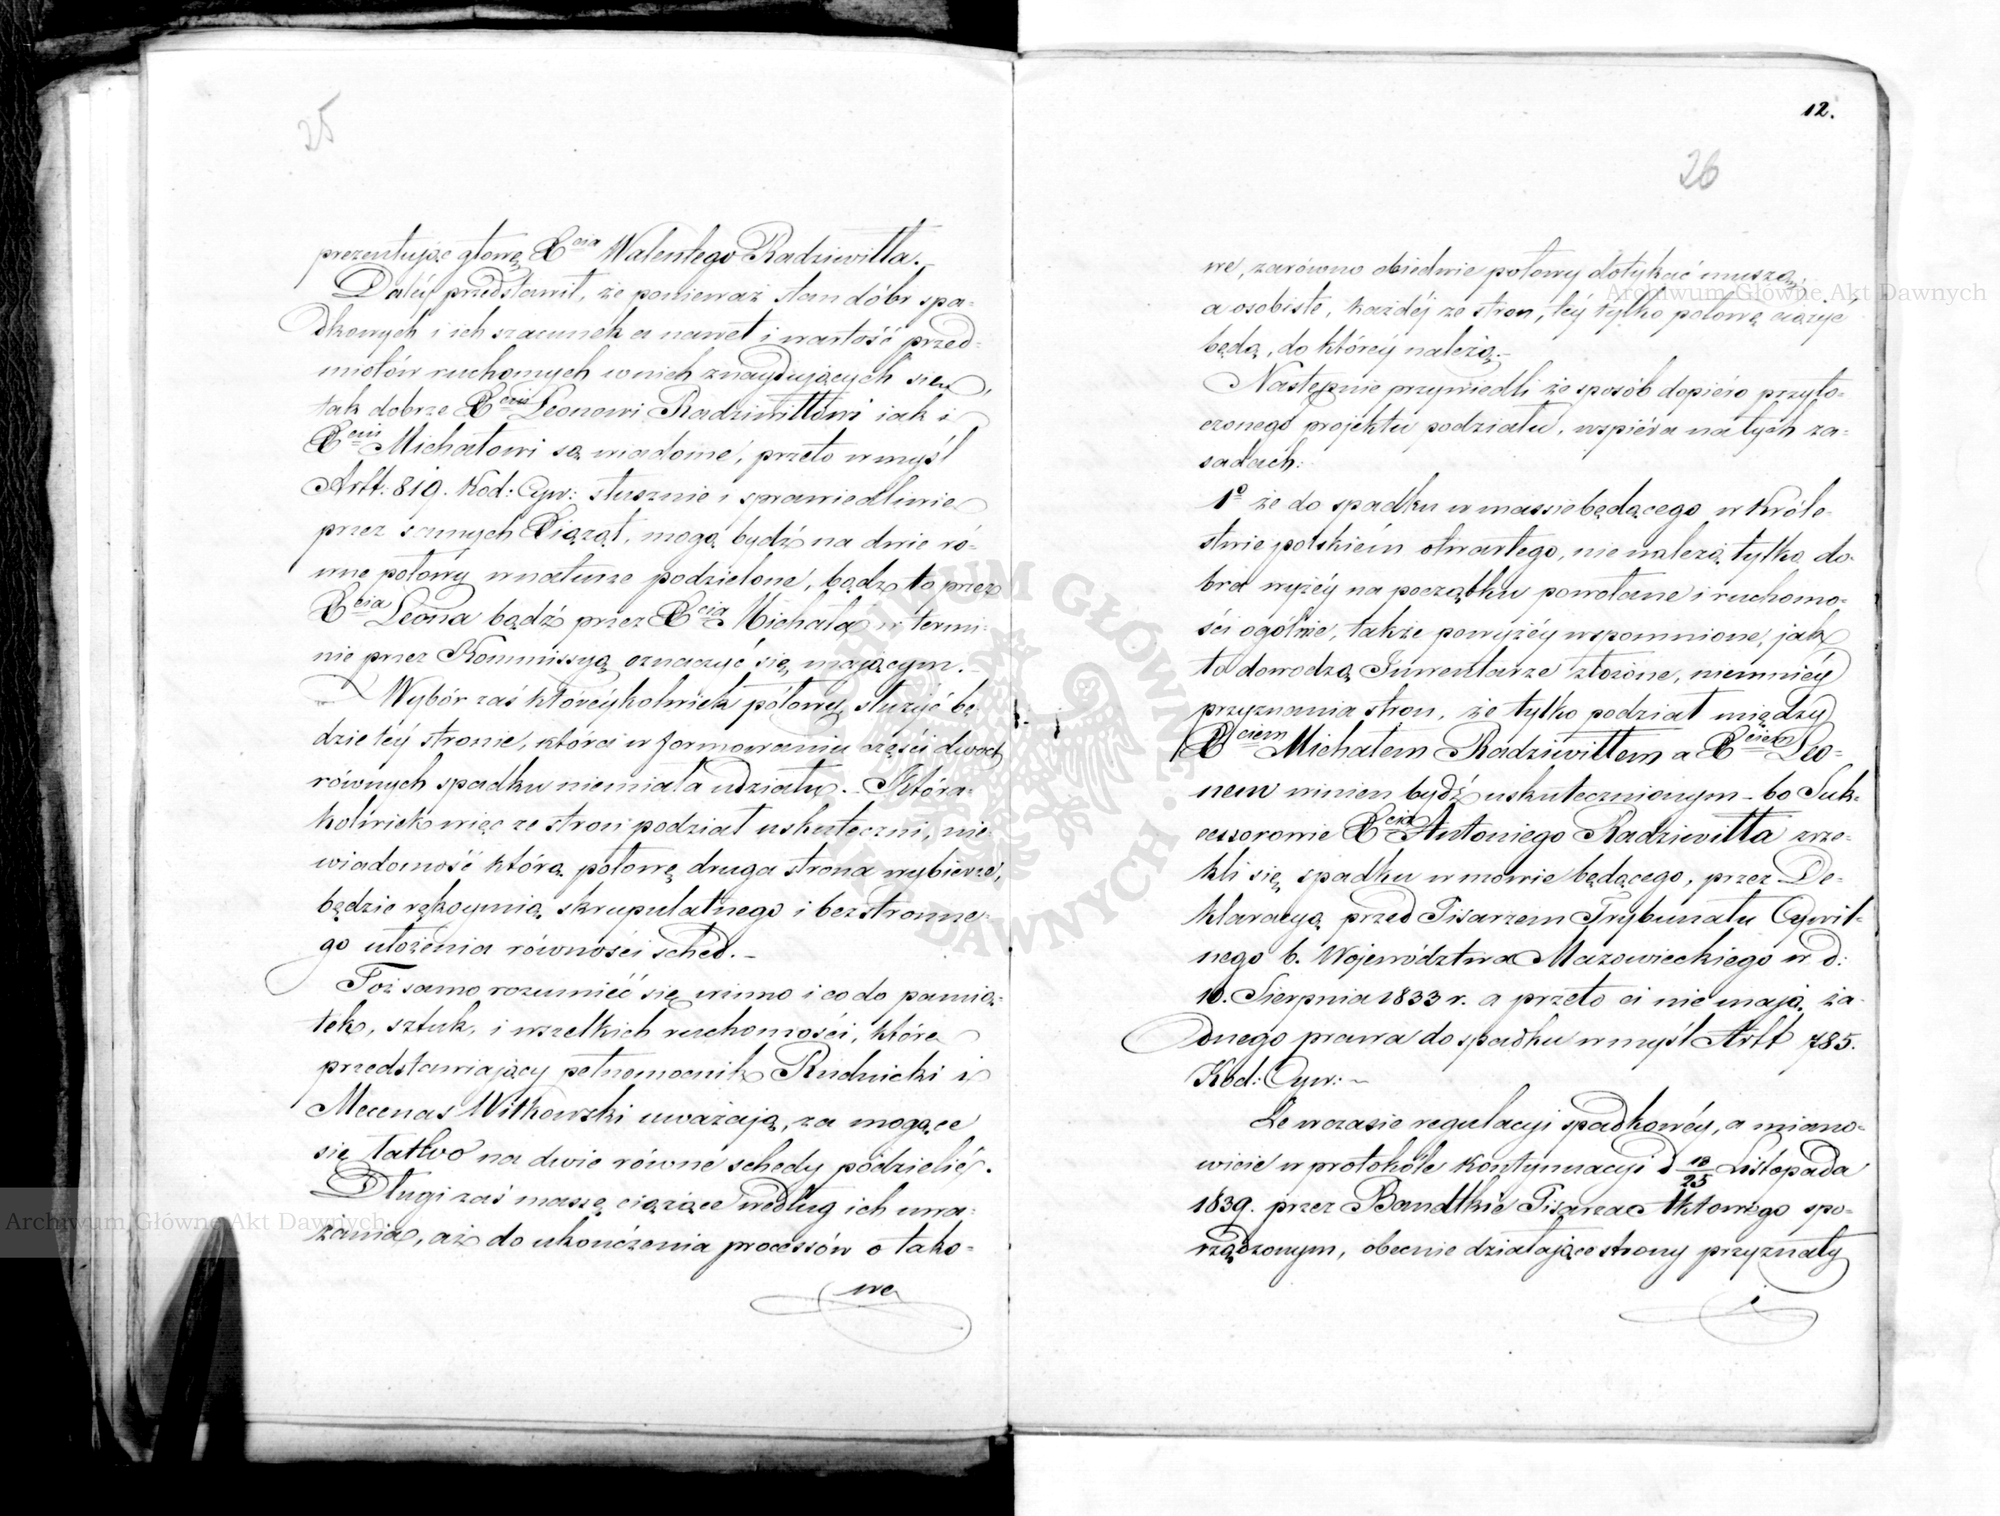 25
prezentując głowę Xcia Walentego Radziwiłła.
Daléy przedstawił, że ponieważ stan dóbr spa-
dkowych i ich szacunek a nawet i wartość przed-
miotów ruchomych w nich znaydujących się,
tak dobrze Xciu Leonowi Radziwiłłowi iak i
Xciu Michałowi są wiadome, przeto w myśl
Artt: 819. Kod: Cyw: słusznie i sprawiedliwie
przez samych Xiążąt, mogą bydź na dwie ró-
wne połowy w naturze podzielone, bądź to przez
Xcia Leona bądź przez Xcia Michała w termi-
nie przez Kommissyą oznaczyć się mającym.-
Wybór zaś któreykolwiek połowy służyć bę-
dzie téy stronie, która w formowaniu części dwóch
równych spadku niemiała udziału.- Która-
kolwiek więc ze stron podział uskuteczni, nie-
wiadomość którą połowę druga strona wybierze,
będzie rękoymią skrupulatnego i bezstronne-
go ułożenia równości sched.-
Toż samo rozumieć się winno i co do pamią-
tek, sztuk, i wszelkich ruchomości, które
przedstawiający pełnomocnik Rudnicki i
Mecenas Witkowski uważają, za mogące
się łatwo na dwie równe schedy podzielić.
Długi zaś massę ciążące według ich uwa-
żania, aż do ukończenia processów o tako-
we
12.
26
we, zarówno obiedwie połowy dotykać muszą,
a osobiste, każdéj ze stron, téy tylko połowę ciążyć
będą, do któréy należą.-
Następnie przywiedli że sposób dopiero przyto-
czonego projektu podziału, wspiéra na tych za-
sadach:
1o że do spadku w massie będącego w Króle-
stwie polskiém otwartego, nie należą tylko do-
bra wyżéy na początku powołane i ruchomo-
ści ogólnie, także powyżéy wspomnione, jak
to dowodzą Inwentarze złożone, niemniéy
przyznania stron, że tylko podział między
Xciem Michałem Radziwiłłem a Xciem Leo-
nem winien bydź uskutecznionym - bo Suk-
cessorowie Xcia Antoniego Radziwiłła zrze-
kli się spadku w mowie będącego, przez De-
klaracyą przed Pisarzem Trybunału Cywil-
nego b. Województwa Mazowieckiego w d:
10. Sierpnia 1833 r. a przeto ci nie mają ża-
dnego prawa do spadku w myśl Artt 785.
Kod: Cyw: ~
Że w czasie regulacyi spadkowéy, a miano-
wicie w protokóle kontynuacyi d 13/25 Listopada
1839. przez Bandtkie Pisarza Aktowego spo-
rządzonym, obecnie działające strony przyznały
i
Archiwum Główne Akt Dawnych
Archiwum Główne Akt Dawnych
ARCHIWUM GŁÓWNE AKT DAWNYCH